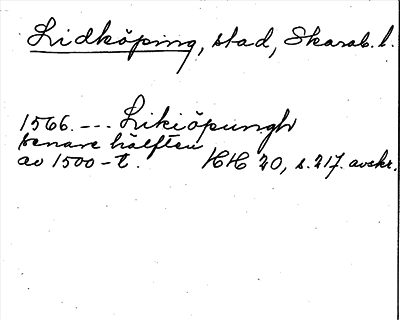 Lidköping, stad, Skarab. l.
1566. --- Likiöpungh
senare hälften
av 1500-t. HH 20, s. 217. avskr.